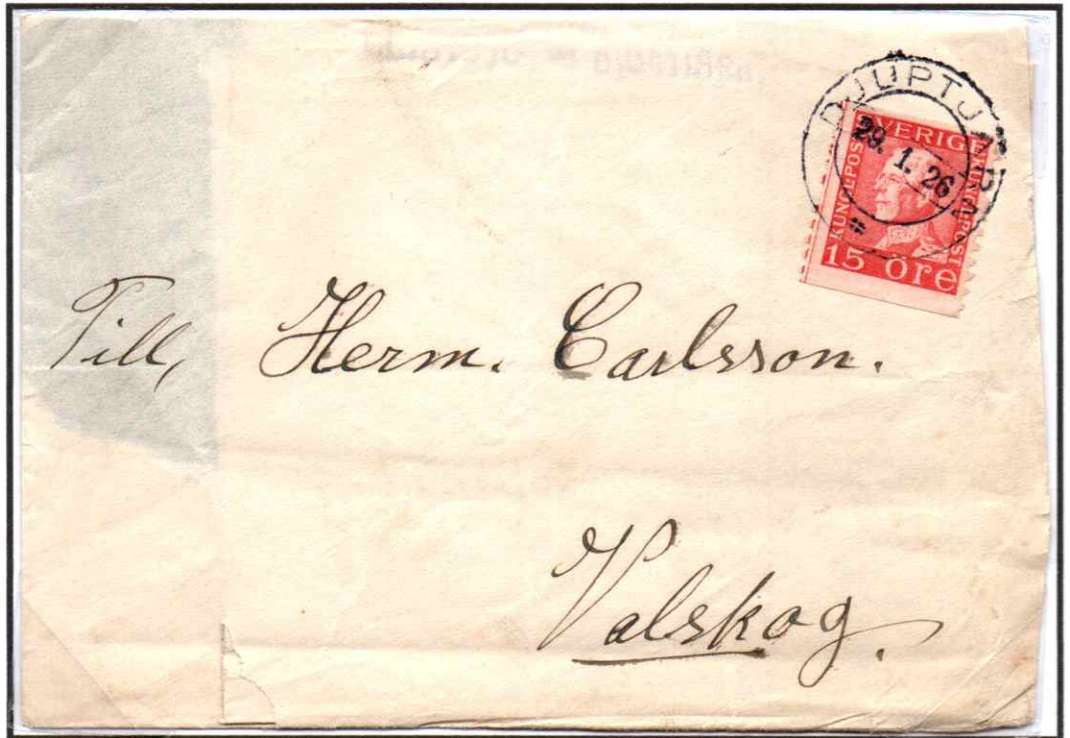 DJUPTJÄRN
29. 1. 26
SVERIGE
KUNGL·POST KUNGL·POST
15 Öre
Till, Herm. Carlsson.
Valskog.